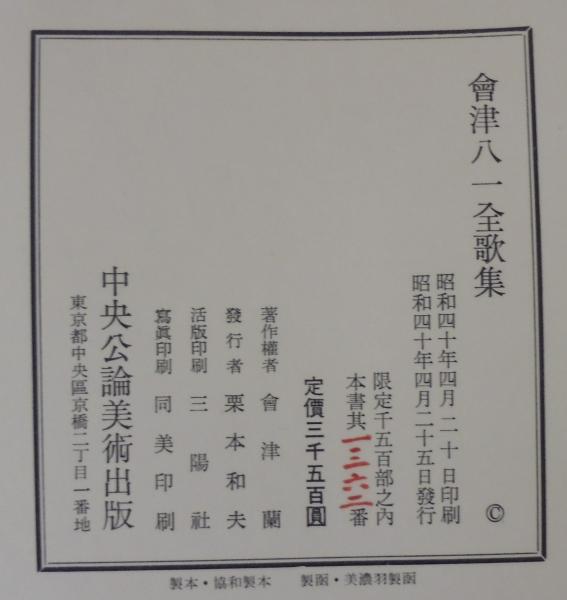 會津八一全歌集
昭和四十年四月二十日印刷
昭和四十年四月二十五日發行
©
限定千五百部之內
本書其一三六二番
定價三千五百圓
著作權者 會津蘭
發行者 栗本和夫
活版印刷 三陽社
寫眞印刷 同美印刷
中央公論美術出版
東京都中央區京橋二丁目一番地
製本・協和製本 製函・美濃羽製函